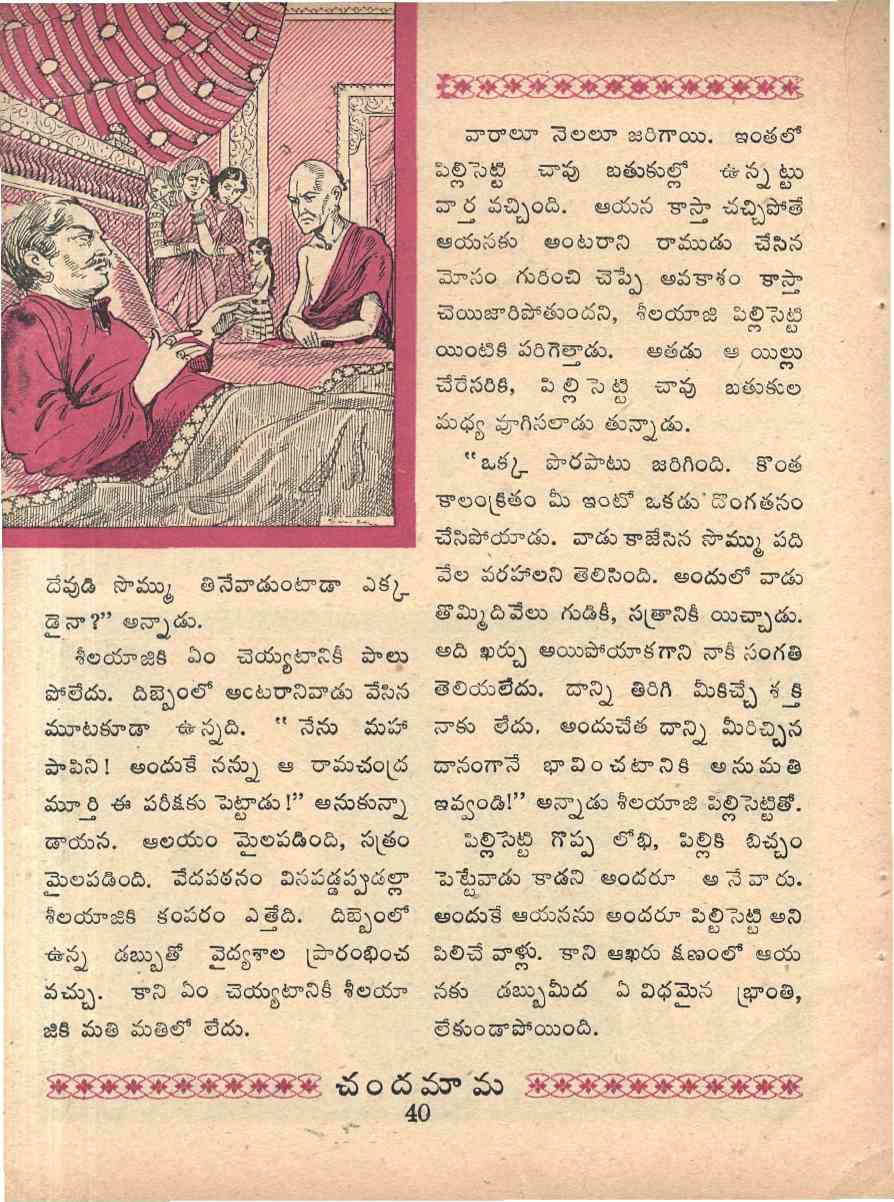 దేవుడి సొమ్ము తినేవాడుంటాడా ఎక్క
డైనా?” అన్నాడు.
శీలయాజికి ఏం చెయ్యటానికీ పాలు
పోలేదు. దిబ్బెంలో అంటరానివాడు వేసిన
మూటకూడా ఉన్నది. “నేను మహా
పాపిని! అందుకే నన్ను ఆ రామచంద్ర
మూర్తి ఈ పరీక్షకు పెట్టాడు!” అనుకున్నా
డాయన. ఆలయం మైలపడింది, సత్రం
మైలపడింది. వేదపఠనం వినపడ్డప్పుడల్లా
శీలయాజికి కంపరం ఎత్తేది. దిబ్బెంలో
ఉన్న డబ్బుతో వైద్యశాల ప్రారంభించ
వచ్చు. కాని ఏం చెయ్యటానికీ శీలయా
జికి మతి మతిలో లేదు.
వారాలూ నెలలూ జరిగాయి. ఇంతలో
పిల్లిసెట్టి చావు బతుకుల్లో ఉన్నట్టు
వార్త వచ్చింది. ఆయన కాస్తా చచ్చిపోతే
ఆయనకు అంటరాని రాముడు చేసిన
మోసం గురించి చెప్పే అవకాశం కాస్తా
చెయిజారిపోతుందని, శీలయాజి పిల్లిసెట్టి
యింటికి పరిగెత్తాడు. అతడు ఆ యిల్లు
చేరేసరికి, పిల్లిసెట్టి చావు బతుకుల
మధ్య వూగిసలాడు తున్నాడు.
“ఒక్క పొరపాటు జరిగింది. కొంత
కాలంక్రితం మీ ఇంటో ఒకడు దొంగతనం
చేసిపోయాడు. వాడు కాజేసిన సొమ్ము పది
వేల వరహాలని తెలిసింది. అందులో వాడు
తొమ్మిదివేలు గుడికీ, సత్రానికీ యిచ్చాడు.
అది ఖర్చు అయిపోయాకగాని నాకీ సంగతి
తెలియలేదు. దాన్ని తిరిగి మీకిచ్చే శక్తి
నాకు లేదు. అందుచేత దాన్ని మీరిచ్చిన
దానంగానే భావించటానికి అనుమతి
ఇవ్వండి!” అన్నాడు శీలయాజి పిల్లిసెట్టితో.
పిల్లిసెట్టి గొప్ప లోభి, పిల్లికి బిచ్చం
పెట్టేవాడు కాడని అందరూ అనేవారు.
అందుకే ఆయనను అందరూ పిల్లిసెట్టి అని
పిలిచే వాళ్లు. కాని ఆఖరు క్షణంలో ఆయ
నకు డబ్బుమీద ఏ విధమైన భ్రాంతి,
లేకుండాపోయింది.
చందమామ
40